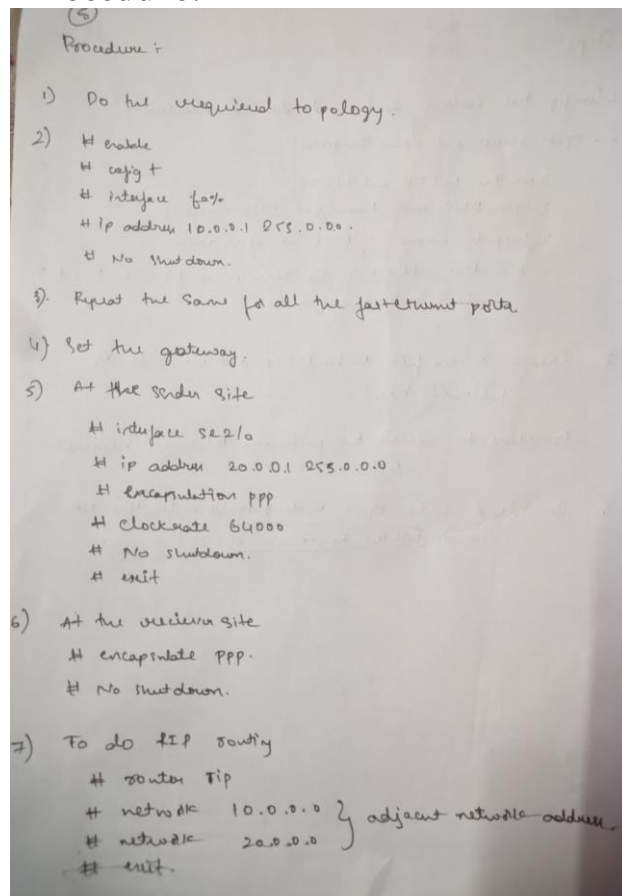 5
Procedure :
1) Do the required topology.
2) # enable
# config t
# interface fa%
# ip address 10.0.0.1 255.0.0.0.
# No shutdown.
3). Repeat the same for all the fastethernet ports
4) Set the gateway.
5) At the sender site
# interface se2/0
# ip address 20.0.0.1 255.0.0.0
# encapsulation ppp
# clockrate 64000
# No shutdown.
# exit
6) At the reciever site
# encapsulate PPP.
# No shutdown.
7) To do RIP routing
# router rip
# network 10.0.0.0 } adjacent network address.
# network 20.0.0.0
# exit.